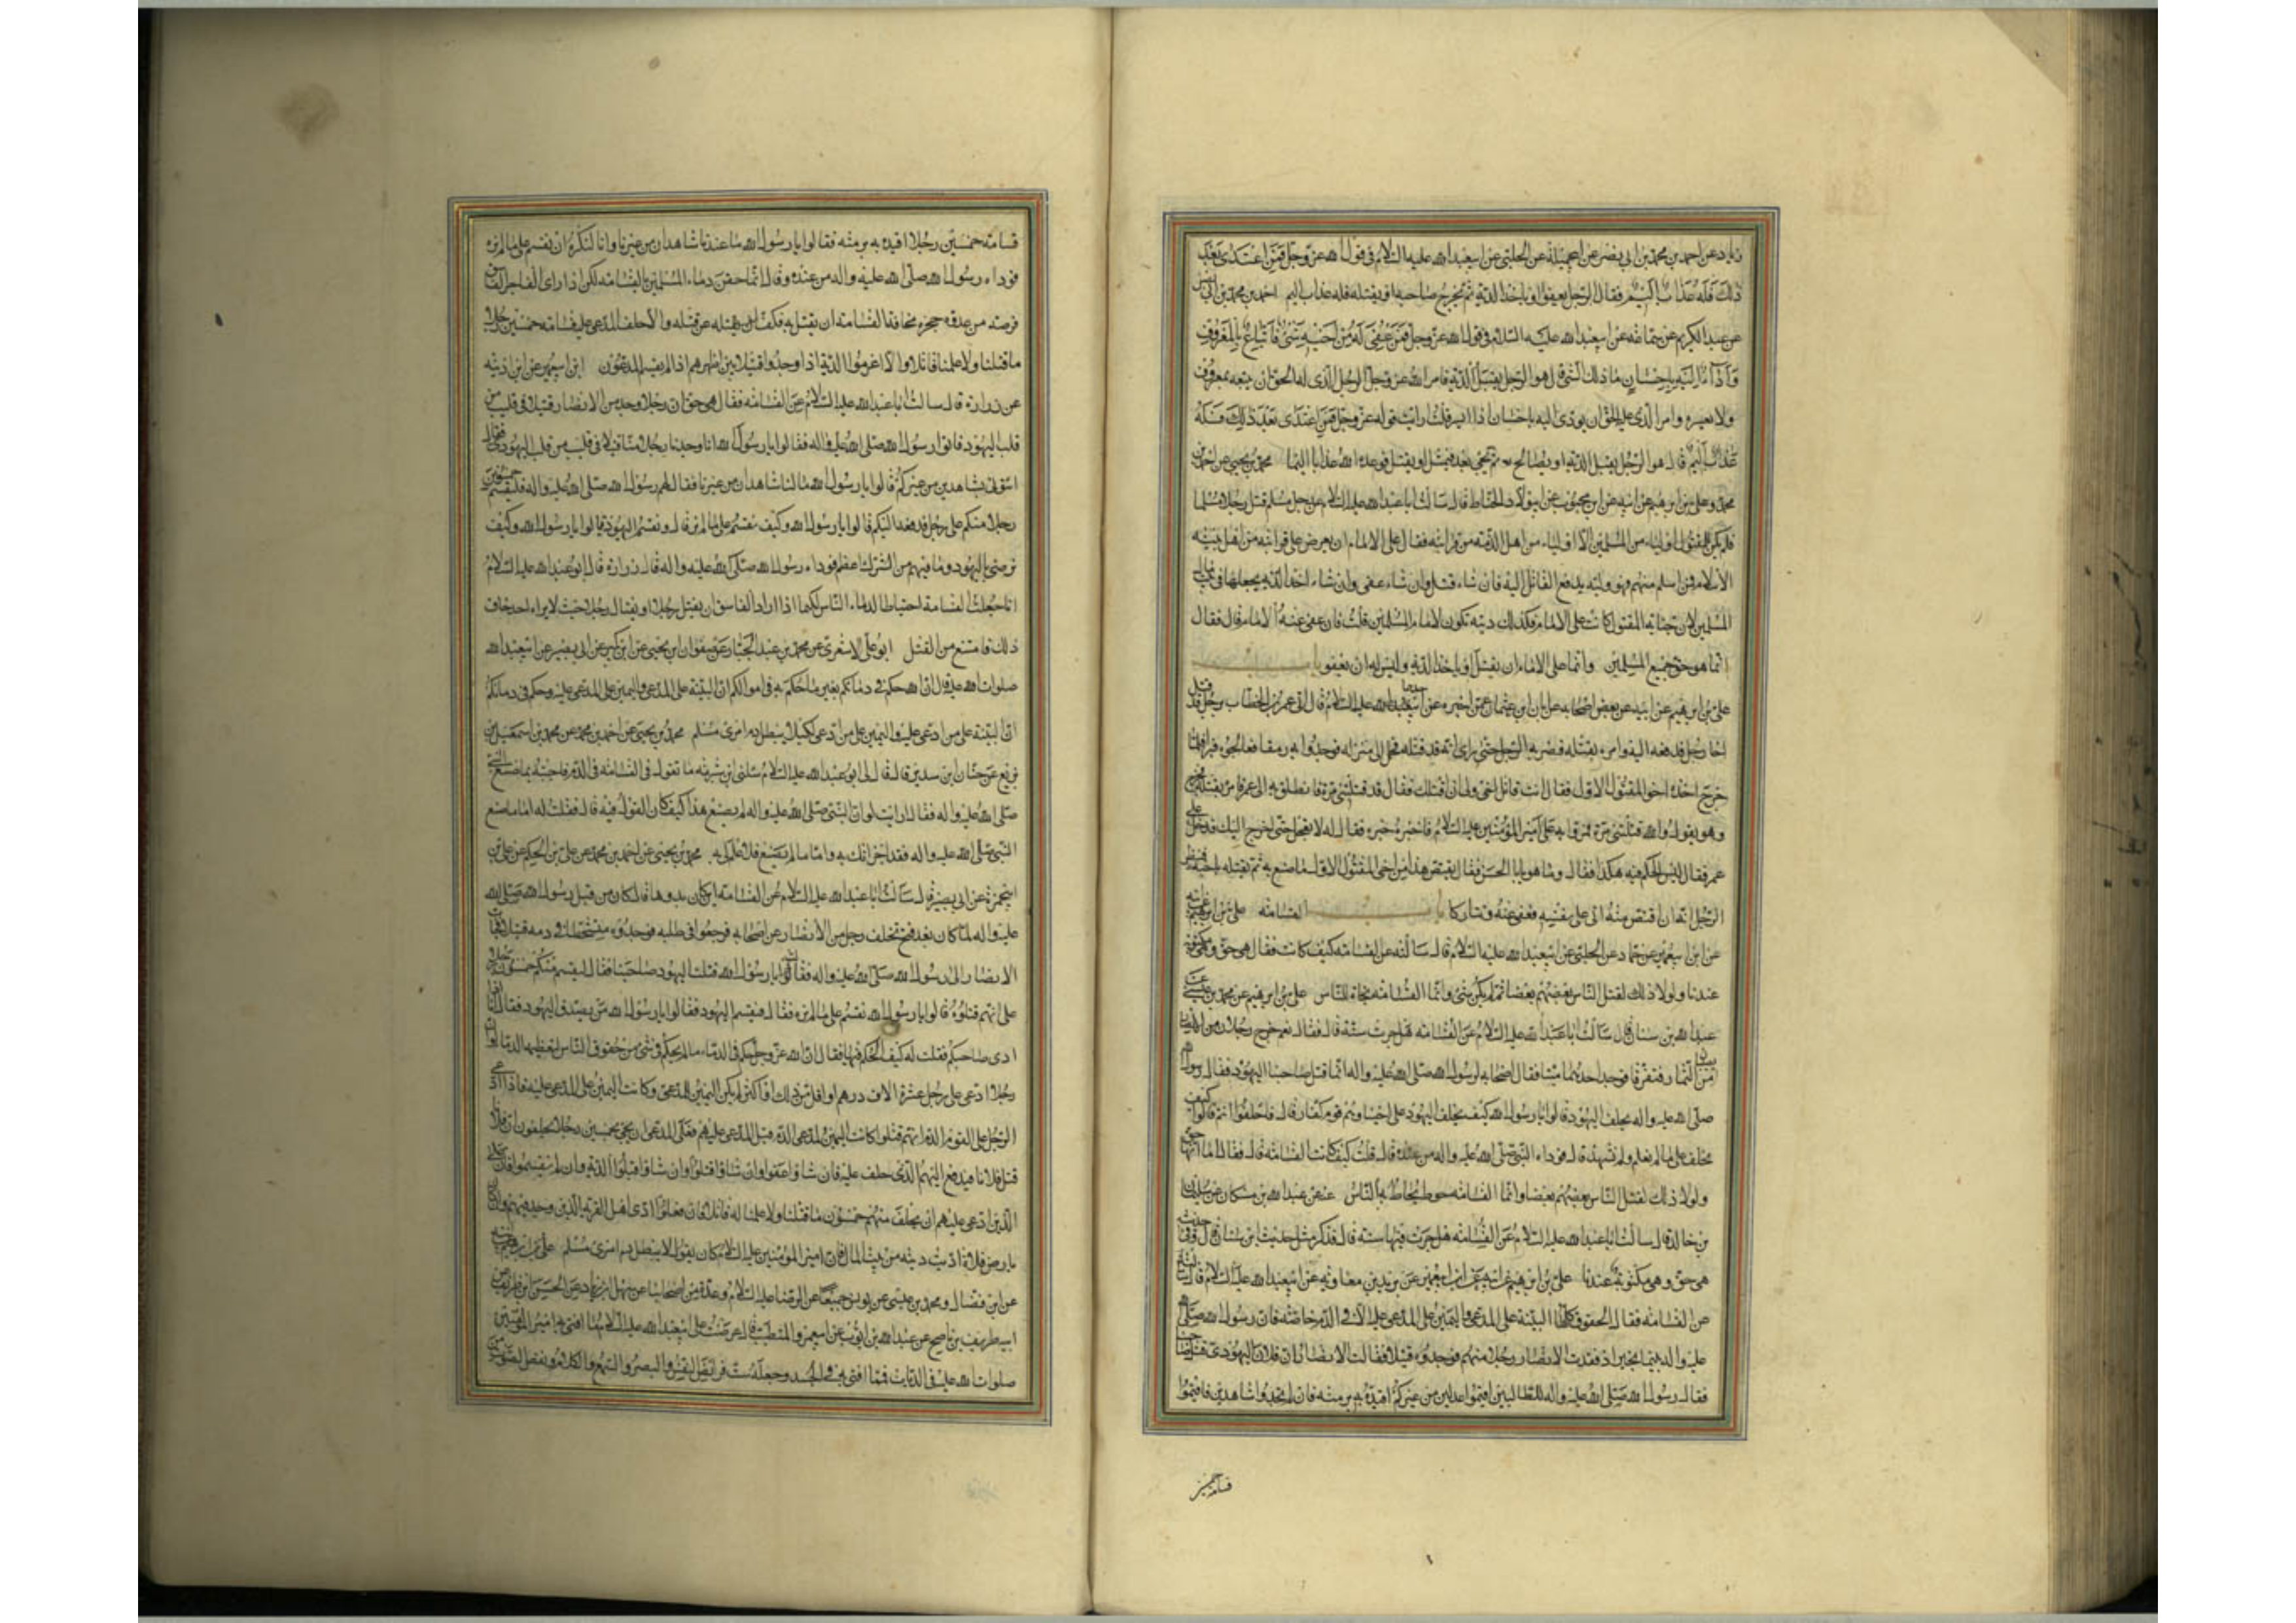 زياد عن احمد بن محمد بن ابي نصر عن ابي جميلة عن الحلبي عن ابيعبدالله عليه السلام في قول الله عز وجل فمن اعتدى بعد
ذلك فله عذاب اليم فقال الرجل يعفو او ياخذ الدية ثم يجرح صاحبه او يقتله فله عذاب اليم احمد بن محمد بن ابي نصر
عن عبد الكريم عن سماعة عن ابيعبدالله عليه السلام في قول الله عز وجل فمن عفي له من اخيه شئ فاتباع بالمعروف
واداء اليه باحسان ما ذلك الشئ قال هو الرجل يقبل الدية فامر الله عز وجل الرجل الذي له الحق ان يتبعه بمعروف
ولا يعسره وامر الذي عليه الحق ان يودى اليه باحسان اذا ايسر قلت ارايت قوله عز وجل فمن اعتدى بعد ذلك فله
عذاب اليم قال هو الرجل يقبل الدية او يصالح ثم يجئ بعد فيمثل او يقتل فوعده الله عذابا اليما محمد بن يحيى عن احمد بن
محمد وعلى بن ابرهيم عن ابيه عن ابن محبوب عن ابي ولاد الحناط قال سالت ابا عبدالله عليه السلام عن رجل مسلم قتل رجلا مسلما
فلم يكن للمقتول اولياء من المسلمين الا اولياء من اهل الذمة من قرابته فقال على الامام ان يعرض على قرابته من اهل بيته
الاسلام فمن اسلم منهم فهو وليه يدفع القاتل اليه فان شاء قتل وان شاء عفى وان شاء اخذ الدية يجعلها في بيت مال
المسلمين لان جناية المقتول كانت على الامام فكذلك ديته تكون لامام المسلمين قلت فان عفى عنه الامام قال فقال
انما هو حق جميع المسلمين وانما على الامام ان يقتل او ياخذ الدية وليس له ان يعفو باب
على بن ابرهيم عن ابيه عن بعض اصحابه عن ابان بن عثمان عمن اخبره عن احدهما عليه السلام قال اتى عمر بن الخطاب برجل قد قتل
اخا رجل فدفعه اليه وامره بقتله فضربه الرجل حتى راى انه قد قتله فحمل الى منزله فوجدوا به رمقا فعالجوه فبرا فلما
خرج اخذه اخو المقتول الاول فقال انت قاتل اخى ولى ان اقتلك فقال قد قتلتنى مرة فانطلق به الى عمر فامر بقتله فخرج
وهو يقول والله قتلتنى مرة فمروا به على امير المؤمنين عليه السلام فاخبره خبره فقال له لا تعجل حتى اخرج اليك فدخل على
عمر فقال ليس الحكم فيه هكذا فقال وما هو يا ابا الحسن فقال يقتص هذا من اخى المقتول الاول ما صنع به ثم يقتله باخيه فنظر
الرجل انه ان اقتص منه اتى على نفسه فعفى عنه وتتاركا باب القسامة على بن ابرهيم عن ابيه
عن ابن ابيعمير عن حماد عن الحلبي عن ابيعبدالله عليه السلام قال سالته عن القسامة كيف كانت فقال هى حق وهى مكتوبة
عندنا ولولا ذلك لقتل الناس بعضهم بعضا ثم لم يكن شئ وانما القسامة نجاة للناس على بن ابرهيم عن محمد بن عيسى عن
عبدالله بن سنان قال سالت ابا عبدالله عليه السلام عن القسامة هل جرت سنة قال فقال نعم خرج رجلان من الانصار
من الثمار فتفرقا فوجد احدهما ميتا فقال اصحابه لرسول الله صلى الله عليه واله انما قتل صاحبنا اليهود فقال رسول الله
صلى الله عليه واله يحلف اليهود قالوا يا رسول الله كيف يحلف اليهود على اخينا وهم قوم كفار قال فاحلفوا انتم قالوا كيف
نحلف على ما لم نعلم ولم نشهد قال فوداه النبى صلى الله عليه واله من عنده قال قلت كيف كانت القسامة قال فقال اما انها حق
ولولا ذلك لقتل الناس بعضهم بعضا وانما القسامة حوط يحاط به الناس عنه عن عبدالله بن مسكان عن سليمان
بن خالد قال سالت ابا عبدالله عليه السلام عن القسامة هل جرت فيها سنة قال فذكر مثل حديث ابن سنان قال وفى حديثه
هى حق وهى مكتوبة عندنا على بن ابرهيم عن ابيه عن ابن ابيعمير عن بريد بن معاوية عن ابيعبدالله عليه السلام قال سالته
عن القسامة فقال الحقوق كلها البينة على المدعى واليمين على المدعى عليه الا في الدم خاصة فان رسول الله صلى الله
عليه واله بينما بخيبر اذ فقدت الانصار رجلا منهم فوجدوه قتيلا فقالت الانصار ان فلان اليهودى قتل صاحبنا
فقال رسول الله صلى الله عليه واله للطالبين اقيموا عدلين من غيركم اقيده به برمته فان لم تجدوا شاهدين فاقيموا
قسامة خمسين
قسامة خمسين رجلا اقيده به برمته فقالوا يا رسول الله ما عندنا شاهدان من غيرنا وانا لنكره ان نقسم على ما لم نره
فوداه رسول الله صلى الله عليه واله من عنده وقال انما حقن دماء المسلمين بالقسامة لكى اذا راى الفاجر الفاسق
فرصة من عدوه حجزه مخافة القسامة ان يقتل به فكف عن قتله والا حلف المدعى عليه قسامة خمسين رجلا
ما قتلنا ولا علمنا قاتلا والا اغرموا الدية اذا وجدوا قتيلا بين اظهرهم اذا لم يقسم المدعون ابن ابيعمير عن ابن اذينه
عن زرارة قال سالت ابا عبدالله عليه السلام عن القسامة فقال هى حق ان رجلا وجد من الانصار قتيلا فى قليب من
قلب اليهود فاتوا رسول الله صلى الله عليه واله فقالوا يا رسول الله انا وجدنا رجلا منا قتيلا فى قليب من قلب اليهود فقال
ائتونى بشاهدين من غيركم قالوا يا رسول الله ما لنا شاهدان من غيرنا فقال لهم رسول الله صلى الله عليه واله فليقسم خمسون
رجلا منكم على رجل ندفعه اليكم قالوا يا رسول الله وكيف نقسم على ما لم نر قال ونقسم اليهود قالوا يا رسول الله وكيف
نرضى باليهود وما فيهم من الشرك اعظم فوداه رسول الله صلى الله عليه واله قال زرارة قال ابو عبدالله عليه السلام
انما جعلت القسامة احتياطا لدماء الناس لكيما اذا اراد الفاسق ان يقتل رجلا او يغتال رجلا حيث لا يراه احد خاف
ذلك فامتنع من القتل ابو على الاشعرى عن محمد بن عبد الجبار عن صفوان بن يحيى عن ابن بكير عن ابى بصير عن ابيعبدالله
صلوات الله عليه قال ان الله حكم فى دمائكم بغير ما حكم به فى اموالكم ان البينة على المدعى واليمين على المدعى عليه وحكم فى دمائكم
ان البينة على من ادعى عليه واليمين على من ادعى لكيلا يبطل دم امرئ مسلم محمد بن يحيى عن احمد بن محمد عن محمد بن اسمعيل بن
بزيع عن حنان بن سدير قال قال لى ابو عبدالله عليه السلام سئلنى ابن شبرمة ما تقول فى القسامة فى الدم فاجبته بما صنع النبى
صلى الله عليه واله فقال ارايت لو ان النبى صلى الله عليه واله لم يصنع هذا كيف كان القول فيه قال فقلت له اما ما صنع
النبى صلى الله عليه واله فقد اخبرتك به واما ما لم يصنع فلا علم لى به محمد بن يحيى عن احمد بن محمد عن على بن الحكم عن على بن
ابيحمزة عن ابى بصير قال سالت ابا عبدالله عليه السلام عن القسامة اين كان بدوها فقال كان من قبل رسول الله صلى الله
عليه واله لما كان بعد فتح تخلف رجل من الانصار عن اصحابه فرجعوا فى طلبه فوجدوه متشحطا فى دمه قتيلا فجاءت
الانصار الى رسول الله صلى الله عليه واله فقالوا يا رسول الله قتلت اليهود صاحبنا فقال ليقسم منكم خمسون رجلا
على انهم قتلوه قالوا يا رسول الله نقسم على ما لم نره فقال فيقسم اليهود فقالوا يا رسول الله من يصدق اليهود فقال انا اذن
ادى صاحبكم فقلت له كيف الحكم فيها فقال ان الله عز وجل حكم فى الدماء ما لم يحكم فى شئ من حقوق الناس لتعظيمه الدماء لو ان
رجلا ادعى على رجل عشرة الاف درهم او اقل من ذلك او اكثر لم يكن اليمين للمدعى وكانت اليمين على المدعى عليه فاذا ادعى
الرجل على القوم الدم انهم قتلوا كانت اليمين لمدعى الدم قبل المدعى عليهم فعلى المدعى ان يجئ بخمسين رجلا يحلفون ان فلانا
قتل فلانا فيدفع اليهم الذى حلف عليه فان شاؤا عفوا وان شاؤا قتلوا وان شاؤا قبلوا الدية وان لم يقسموا فان على
الذين ادعى عليهم ان يحلف منهم خمسون ما قتلنا ولا علمنا له قاتلا فان فعلوا ادى اهل القرية الذين وجد فيهم وان كان
بارض فلاة اديت ديته من بيت المال فان امير المؤمنين عليه السلام كان يقول لا يبطل دم امرئ مسلم على بن ابرهيم عن ابيه
عن ابن فضال ومحمد بن عيسى عن يونس جميعا عن الرضا عليه السلام وعدة من اصحابنا عن سهل بن زياد عن الحسن بن ظريف عن
ابيه ظريف بن ناصح عن عبدالله بن ايوب عن ابيعمرو المتطبب قال عرضت على ابيعبدالله عليه السلام ما افتى به امير المؤمنين
صلوات الله عليه فى الديات فمما افتى به فى الجسد وجعله ست فرايض النفس والبصر والسمع والكلام ونقص الصوت من